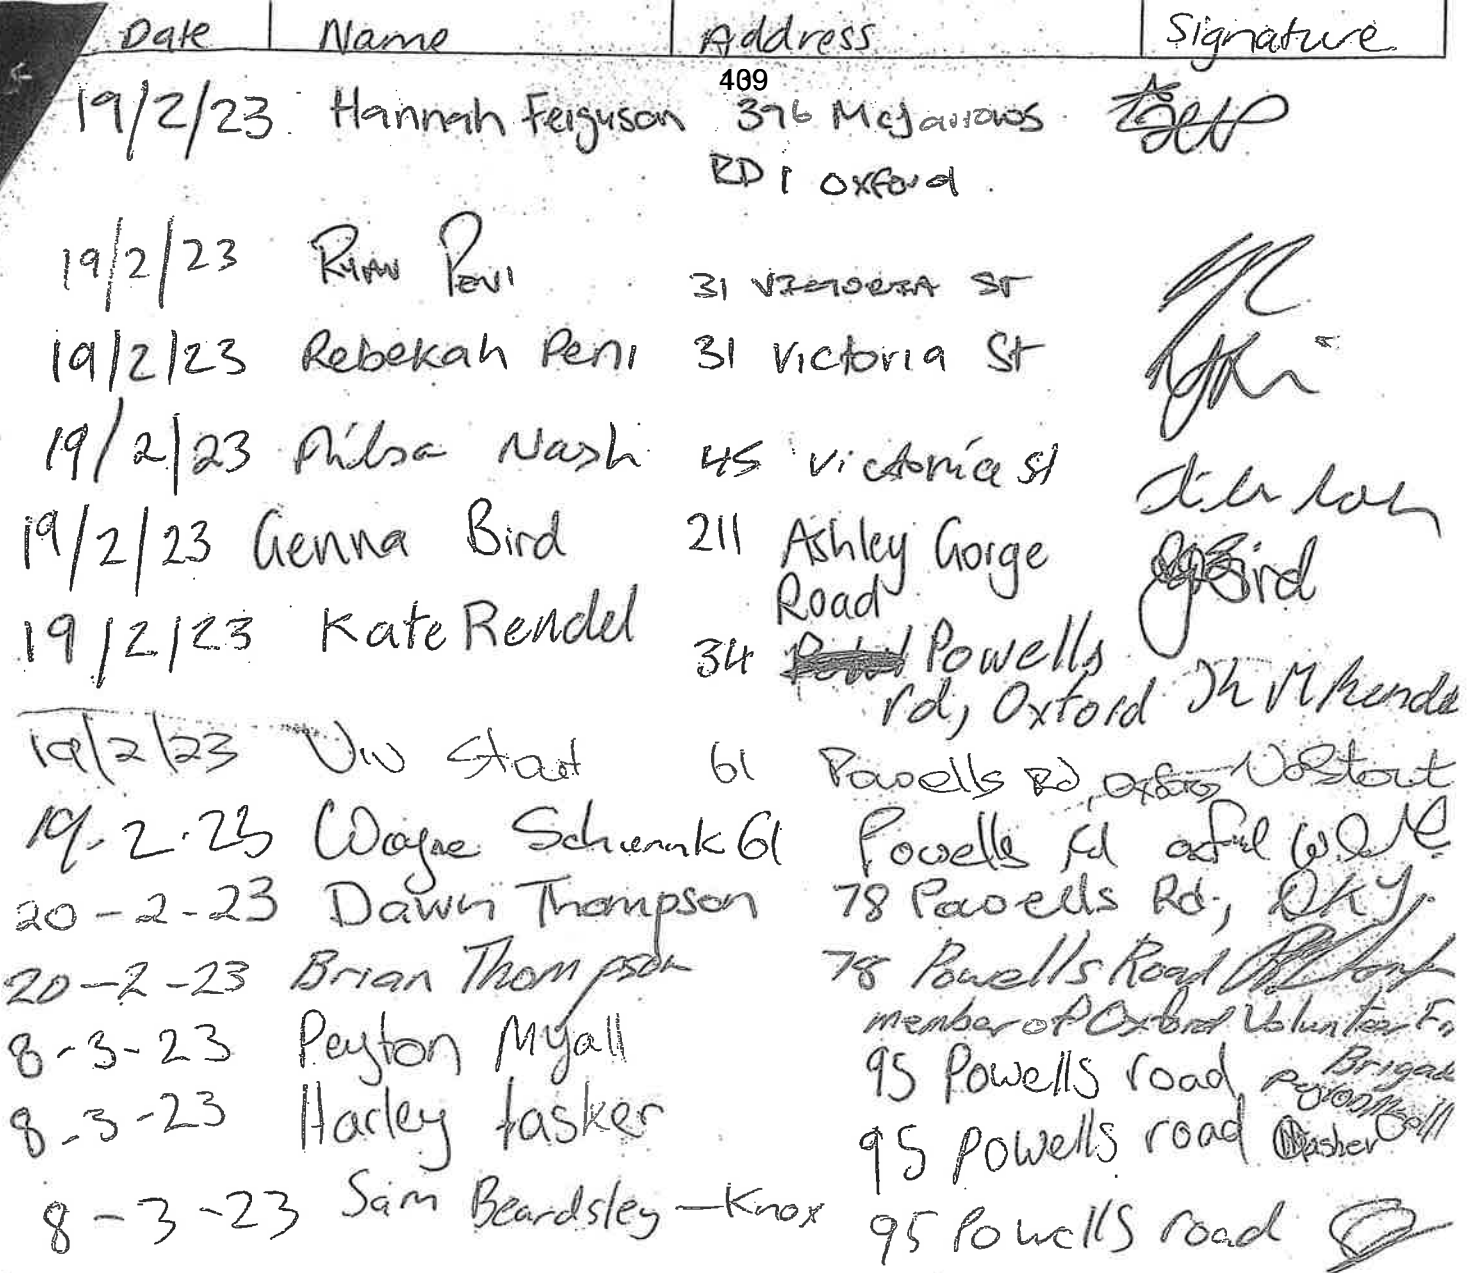 Date Name Address Signature
409
19/2/23 Hannah Ferguson 396 McJarrows
RD 1 Oxford
19/2/23 Ryan Peni 31 VICTORIA ST
19/2/23 Rebekah Peni 31 Victoria St
19/2/23 Nash 45 Victoria St
19/2/23 Genna Bird 211 Ashley Gorge gBird
Road
19/2/23 Kate Rendel 34 Powells
rd, Oxford
19/2/23 Viv Stout 61 Powells Rd, Oxford
19.2.23 Wayne 61 Powells rd
20-2-23 Dawn Thompson 78 Powells Rd,
20-2-23 Brian Thompson 78 Powells Road
member of Oxford Volunteer
Brigade
8-3-23 Peyton Myall 95 Powells road
8-3-23 Harley tasker 95 Powells road
8-3-23 Sam Beardsley-Knox 95 Powells road